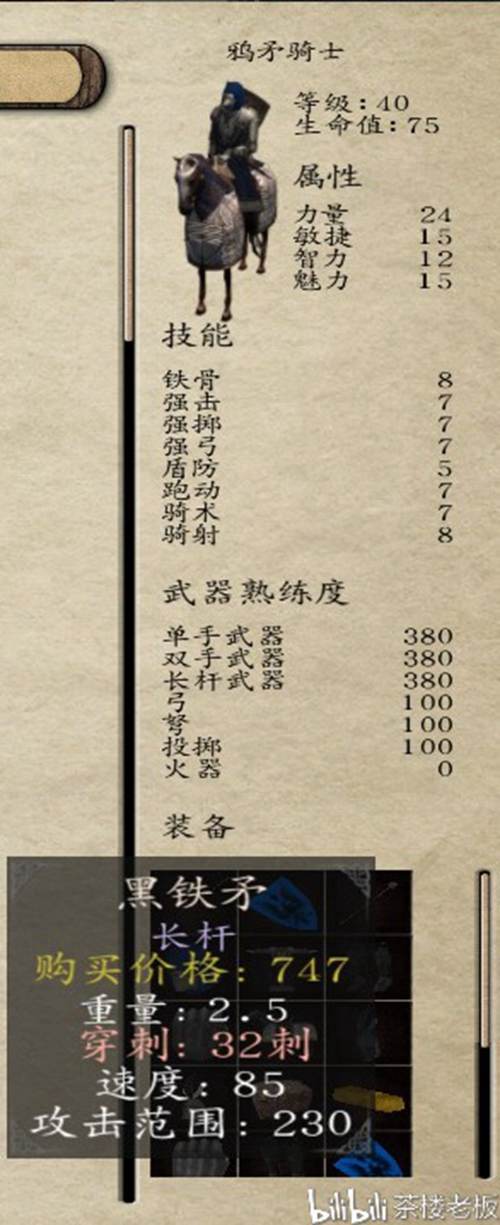 鸦矛骑士
等级：40
生命值：75
属性
力量 24
敏捷 15
智力 12
魅力 15
技能
铁骨 8
强击 7
强掷 7
强弓 7
盾防 5
跑动 7
骑术 7
骑射 8
武器熟练度
单手武器 380
双手武器 380
长杆武器 380
弓 100
弩 100
投掷 100
火器 0
装备
黑铁矛
长杆
购买价格：747
重量：2.5
穿刺：32刺
速度：85
攻击范围：230
bilibili 茶楼老板